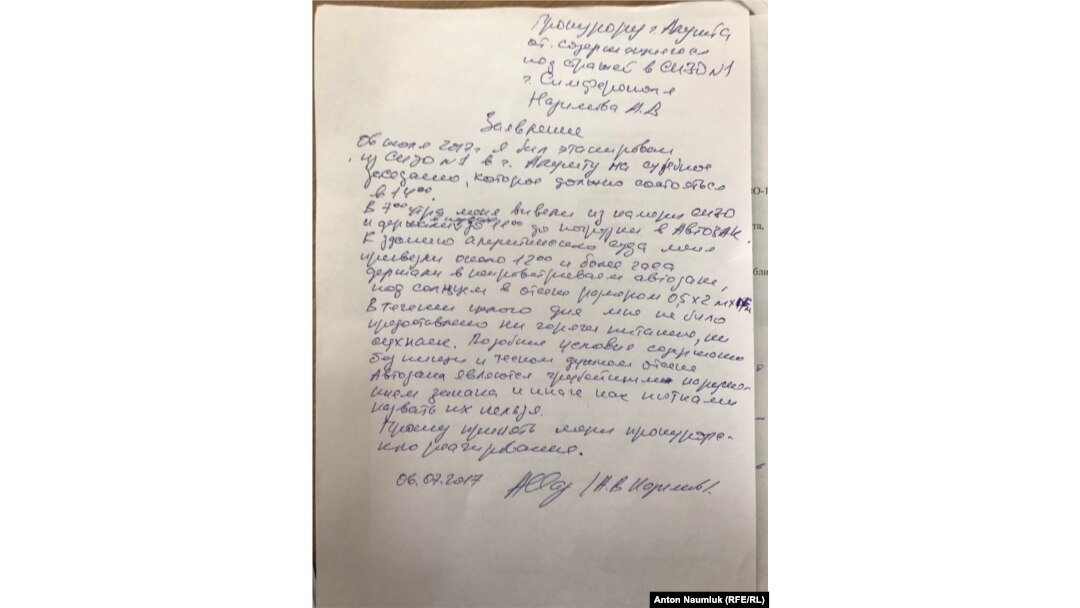 Прокурору г. Алушта
от содержащегося
под стражей в СИЗО №1
г. Симферополя
Назимова А.В
Заявление
06 июля 2017г я был этапирован
из СИЗО №1 в г. Алушту на судебное
заседание, которое должно состояться
в 14 00.
В 7 00 утра меня вывели из камеры СИЗО
и держали до до погрузки в АВТОЗАК.
К зданию алуштинского суда меня
привезли около 12 00 и более часа
держали в непроветриваем автозаке,
под солнцем в отсеке размером 0,5х2 м
В течении целого дня мне не было
предоставлено ни горячее питание, ни
сухпаек. Подобные условия содержания
без пищи и тесном душном отсеке
Автозака являются грубейшими наруше-
нием закона и иначе как пытками
назвать их нельзя.
Прошу принять меры прокурорс-
кого реагирования.
06.07.2017 /А.В Назимов/.
О-1
та,
бли
Anton Naumluk (RFE/RL)